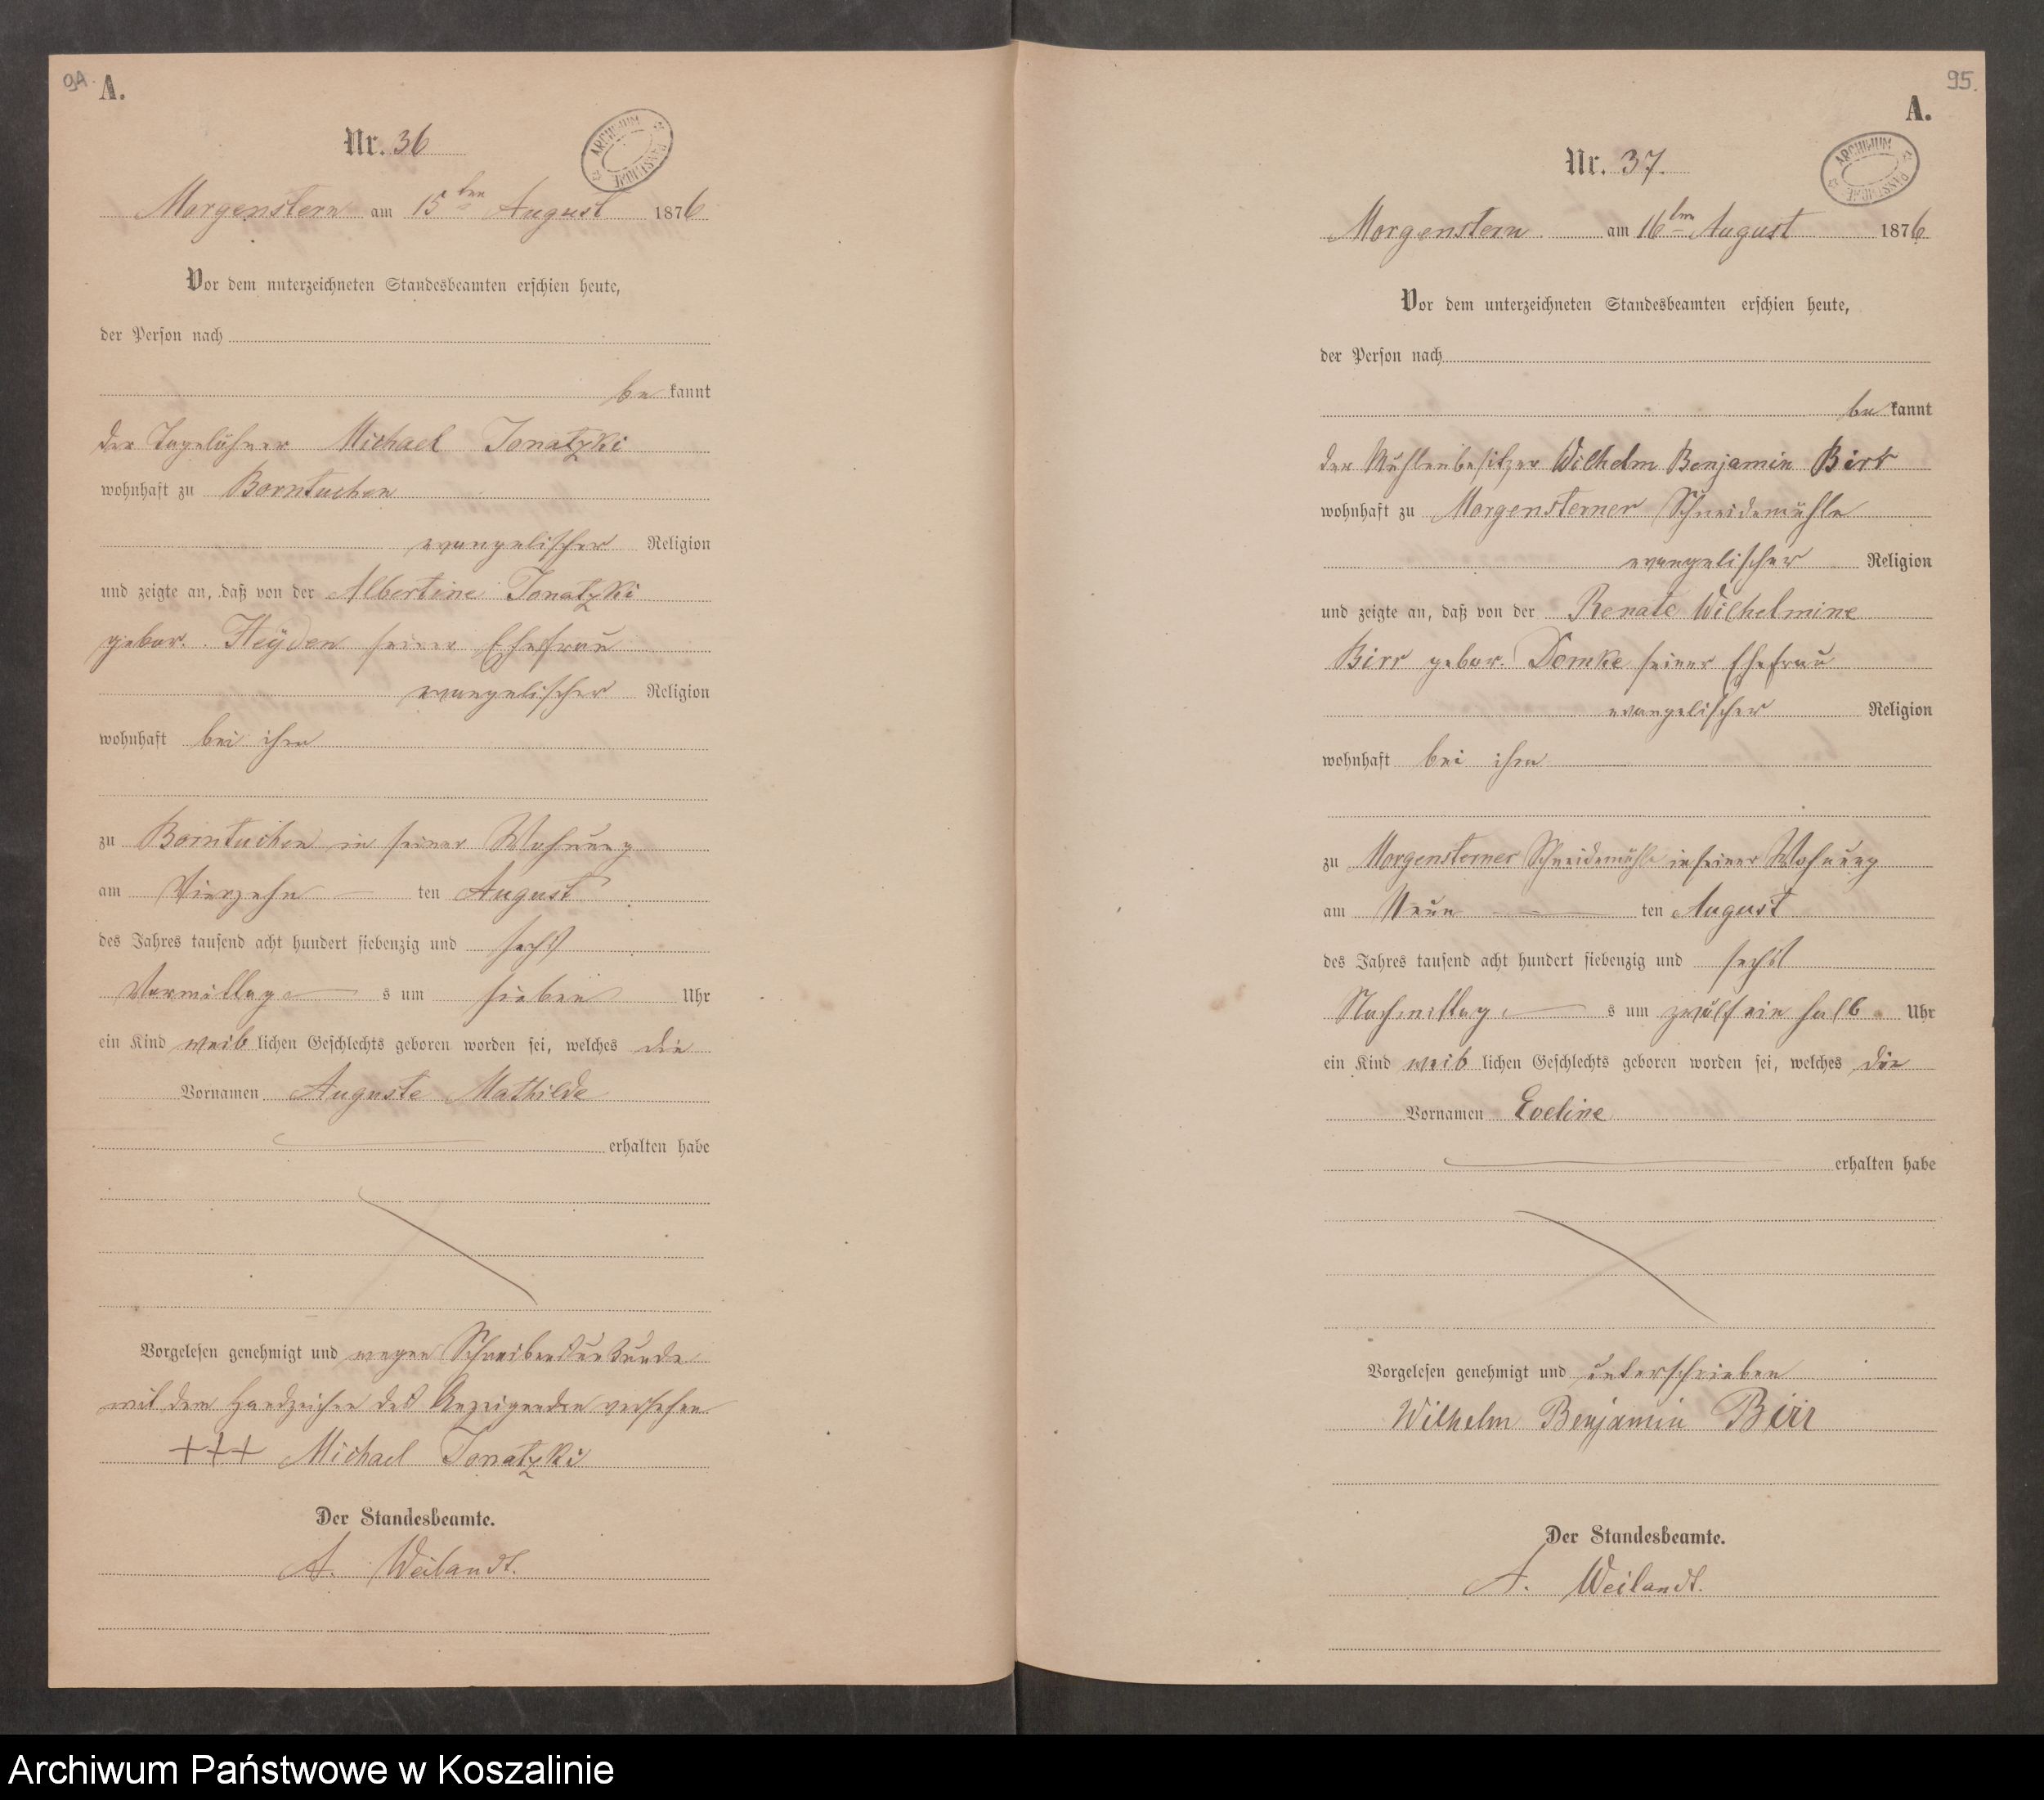 94.
A.
ARCHIWUM PAŃSTWOWE
Nr. 36
Morgenstern am 15ten August 1876
Vor dem unterzeichneten Standesbeamten erschien heute,
der Person nach
be kannt
der Tagelöhner Michael Jonatzki
wohnhaft zu Borntuchen
evangelischer Religion
und zeigte an, daß von der Albertine Jonatzki
gebor. Heÿden seiner Ehefrau
evangelischer Religion
wohnhaft bei ihm
zu Borntuchen in seiner Wohnung
am Vierzehn ten August
des Jahres tausend acht hundert siebenzig und sechs
Vormittag s um sieben Uhr
ein Kind weib lichen Geschlechts geboren worden sei, welches die
Vornamen Auguste Mathilde
erhalten habe
Vorgelesen genehmigt und wegen Schreibensunkunde
mit dem Handzeichen des Anzeigenden versehen
+++ Michael Jonatzki
Der Standesbeamte.
A. Weilandt.
95.
A.
ARCHIWUM PAŃSTWOWE
Nr. 37.
Morgenstern am 16ten August 1876
Vor dem unterzeichneten Standesbeamten erschien heute,
der Person nach
be kannt
der Mühlenbesitzer Wilhelm Benjamin Birr
wohnhaft zu Morgensterner Schneidemühle
evangelischer Religion
und zeigte an, daß von der Renate Wilhelmine
Birr gebor. Domke seiner Ehefrau
evangelischer Religion
wohnhaft bei ihm
zu Morgensterner Schneidemühle in seiner Wohnung
am Neun ten August
des Jahres tausend acht hundert siebenzig und sechs
Nachmittag s um zwölf ein halb Uhr
ein Kind weib lichen Geschlechts geboren worden sei, welches die
Vornamen Eveline
erhalten habe
Vorgelesen genehmigt und unterschrieben
Wilhelm Benjamin Birr
Der Standesbeamte.
A. Weilandt.
Archiwum Państwowe w Koszalinie